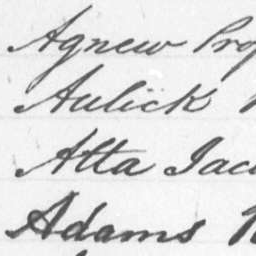 Agnew Prof
Aulick
Atta Jac
Adams